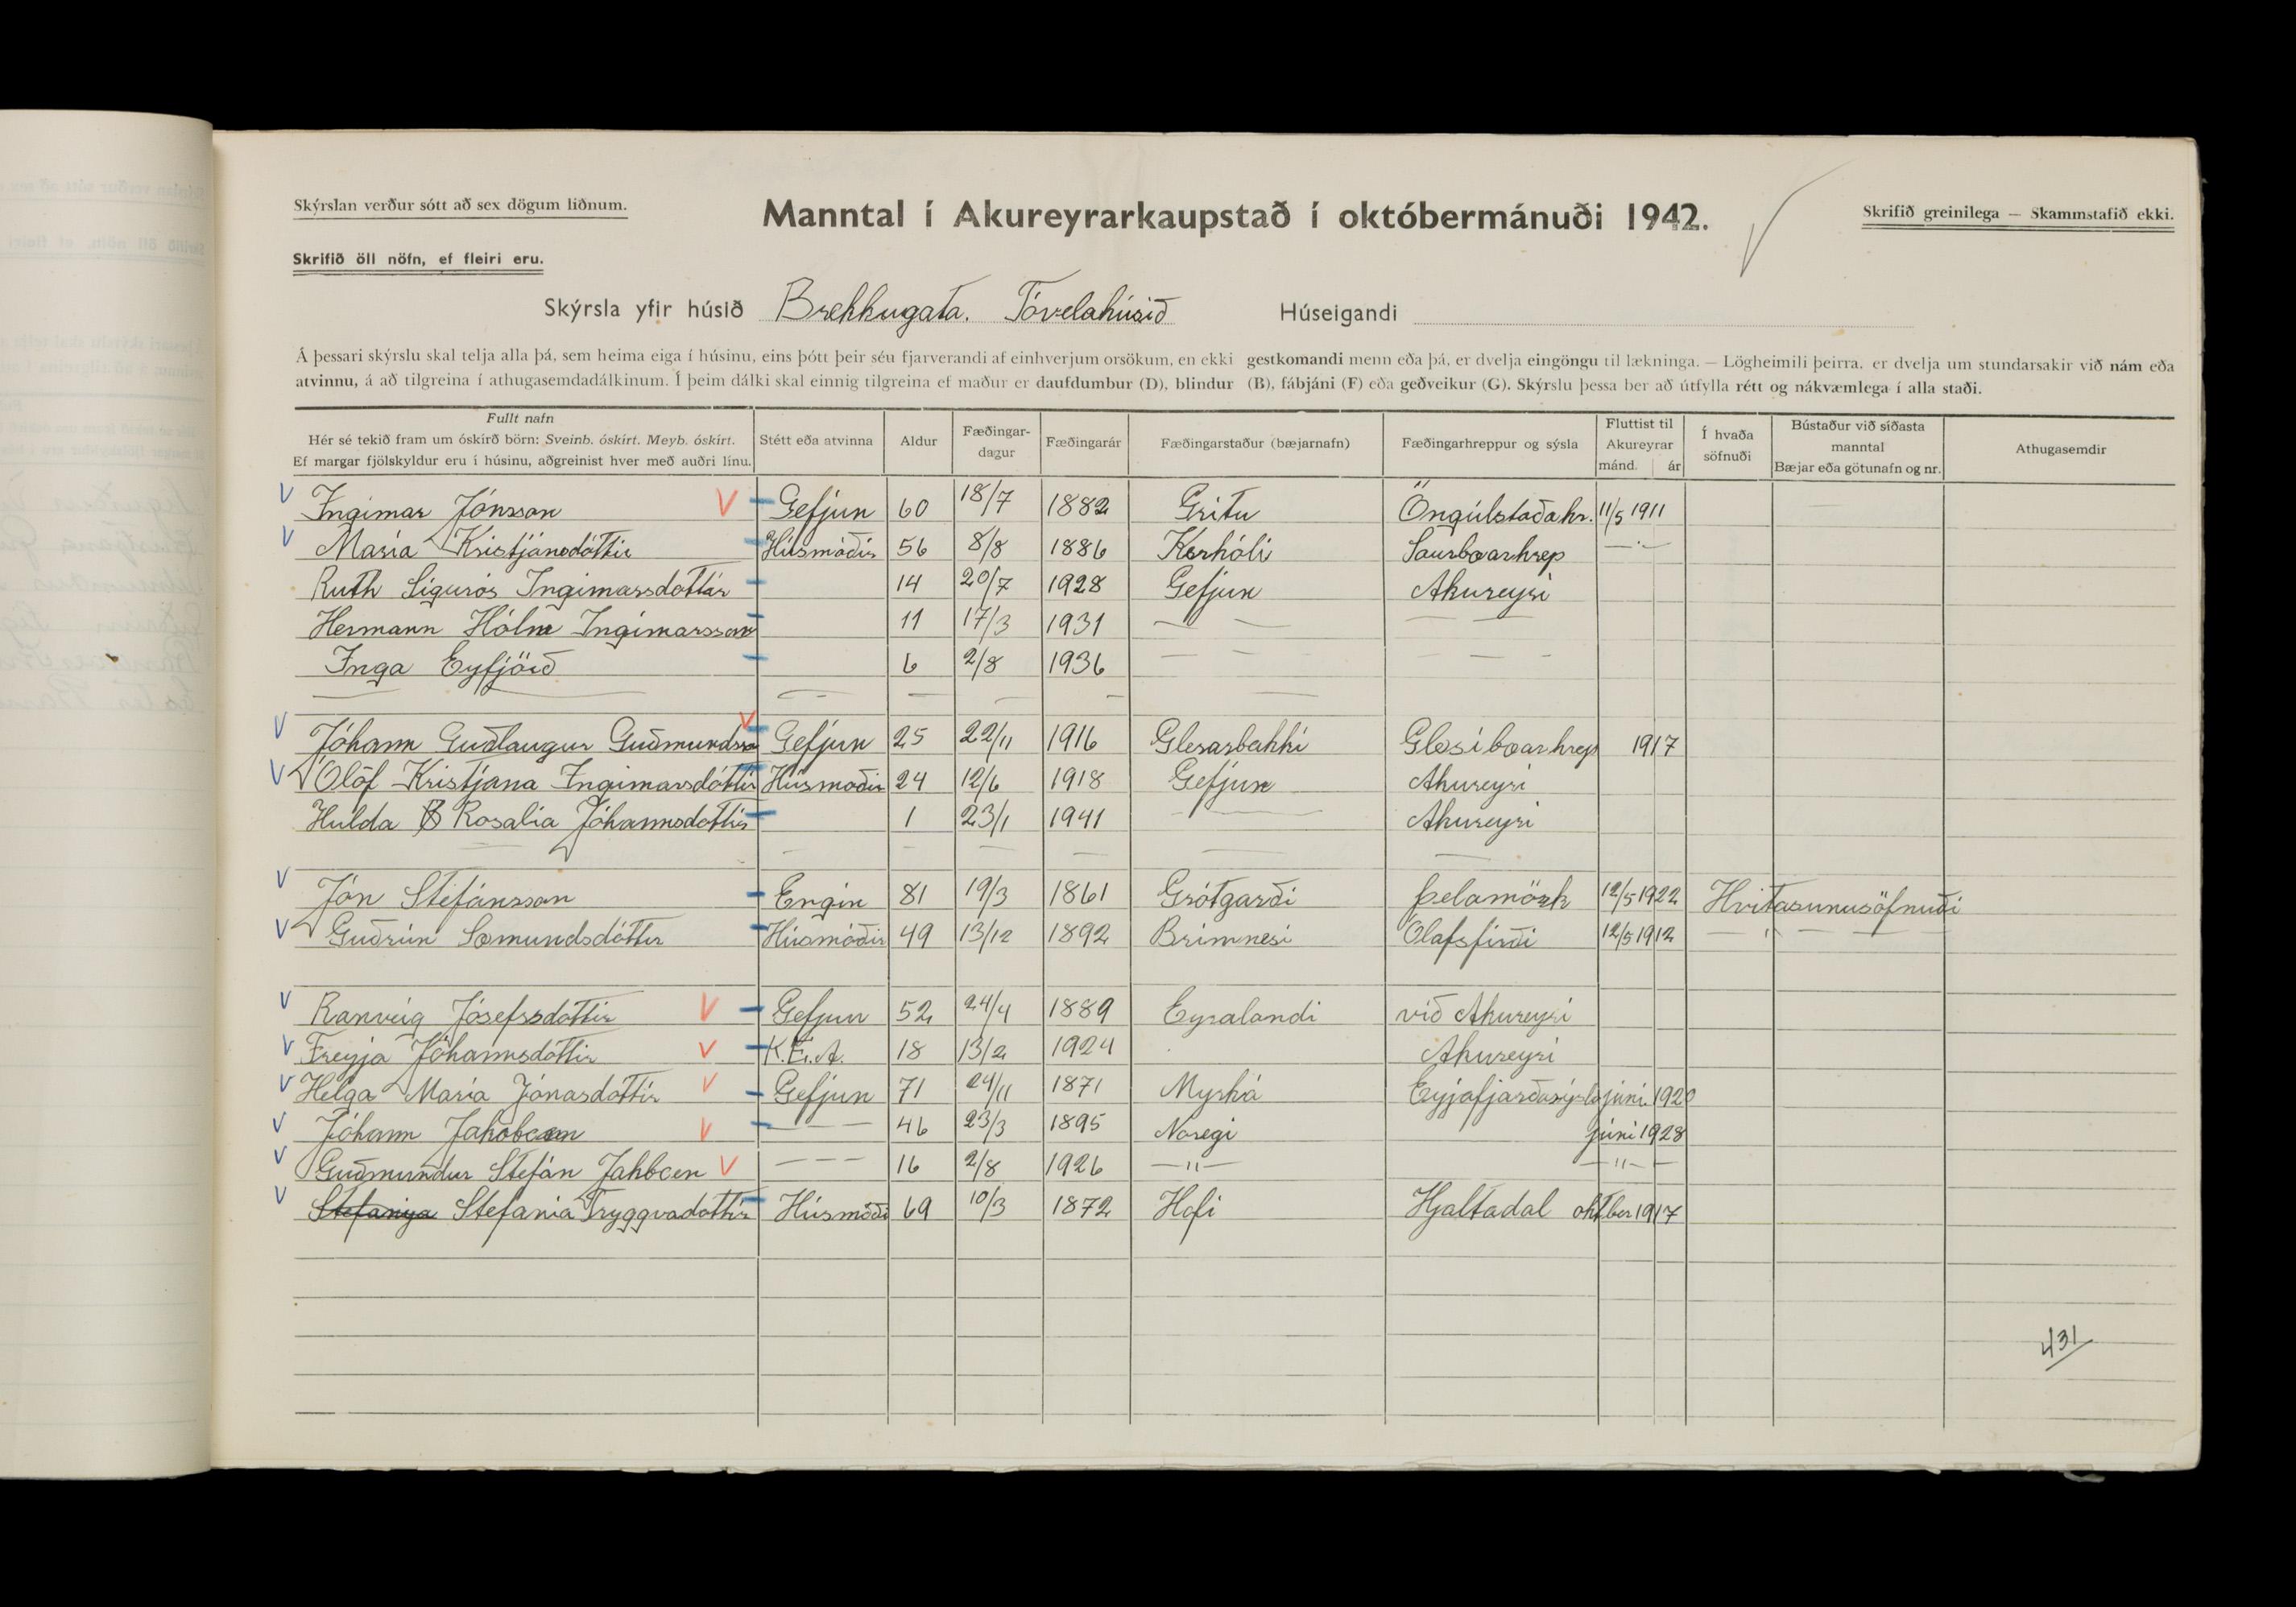 Skýrslan verður sótt að sex dögum liðnum.
Manntal í Akureyrarkaupstað í októbermánuði 1942.
Skrifið greinilega — Skammstafið ekki.
Skrifið öll nöfn, ef fleiri eru.
Skýrsla yfir húsið Brekkugata. Tóvelahúsið Húseigandi
Á þessari skýrslu skal telja alla þá, sem heima eiga í húsinu, eins þótt þeir séu fjarverandi af einhverjum orsökum, en ekki gestkomandi menn eða þá, er dvelja eingöngu til lækninga. — Lögheimili þeirra, er dvelja um stundarsakir við nám eða
atvinnu, á að tilgreina í athugasemdadálkinum. Í þeim dálki skal einnig tilgreina ef maður er daufdumbur (D), blindur (B), fábjáni (F) eða geðveikur (G). Skýrslu þessa ber að útfylla rétt og nákvæmlega í alla staði.
Fullt nafn
Hér sé tekið fram um óskírð börn: Sveinb. óskírt. Meyb. óskírt.
Ef margar fjölskyldur eru í húsinu, aðgreinist hver með auðri línu.
Stétt eða atvinna
Aldur
Fæðingar-
dagur
Fæðingarár
Fæðingarstaður (bæjarnafn)
Fæðingarhreppur og sýsla
Fluttist til
Akureyrar
mánd. ár
Í hvaða
söfnuði
Bústaður við síðasta
manntal
Bæjar eða götunafn og nr.
Athugasemdir
V Ingimar Jónsson V Gefjun 60 18/7 1882 Gritu Öngúlstaðahr. 11/5 1911
V María Kristjánsdóttir Húsmóðir 56 8/8 1886 Kerhóli Saurbæarhrep —·—
Ruth Sigurós Ingimarsdóttir 14 20/7 1928 Gefjun Akureyri
Hermann Hólm Ingimarsson 11 17/3 1931 — — — — —
Inga Eyfjörð 6 2/8 1936 — — — — — —
V Jóhann Guðlaugur Guðmundsson V Gefjun 25 22/11 1916 Glerarbakki Glæsibæarhrep 1917
V Ólöf Kristjana Ingimarsdóttir Húsmóðir 24 12/6 1918 Gefjun Akureyri
Hulda B Rosalia Jóhannsdottir 1 23/1 1941 — — Akureyri
V Jón Stefánsson Engin 81 19/3 1861 Grótgarði Þelamörk 12/5 1922 Hvitasunusöfnuði
V Guðrún Sæmundsdóttir Húsmóðir 49 13/12 1892 Brimnesi Ólafsfirði 12/5 1912 — " — — —
V Ranveig Jósefssdóttir V Gefjun 52 24/4 1889 Eyralandi við Akureyri
V Freyja Jóhannsdóttir V K.E.A. 18 13/2 1924 Akureyri
V Helga María Jónasdóttir V Gefjun 71 24/11 1871 Myrká Eyjafjarðasýsla júni 1920
V Jóhann Jakobcen V — — — 46 23/3 1895 Noregi júni 1928
V Guðmundur Stefán Jakbcen V — — — 16 2/8 1926 —"— —"—
V Stefaniya Stefania Tryggvadóttir Húsmóði 69 10/3 1872 Hofi Hjaltadal oktber 1917
431